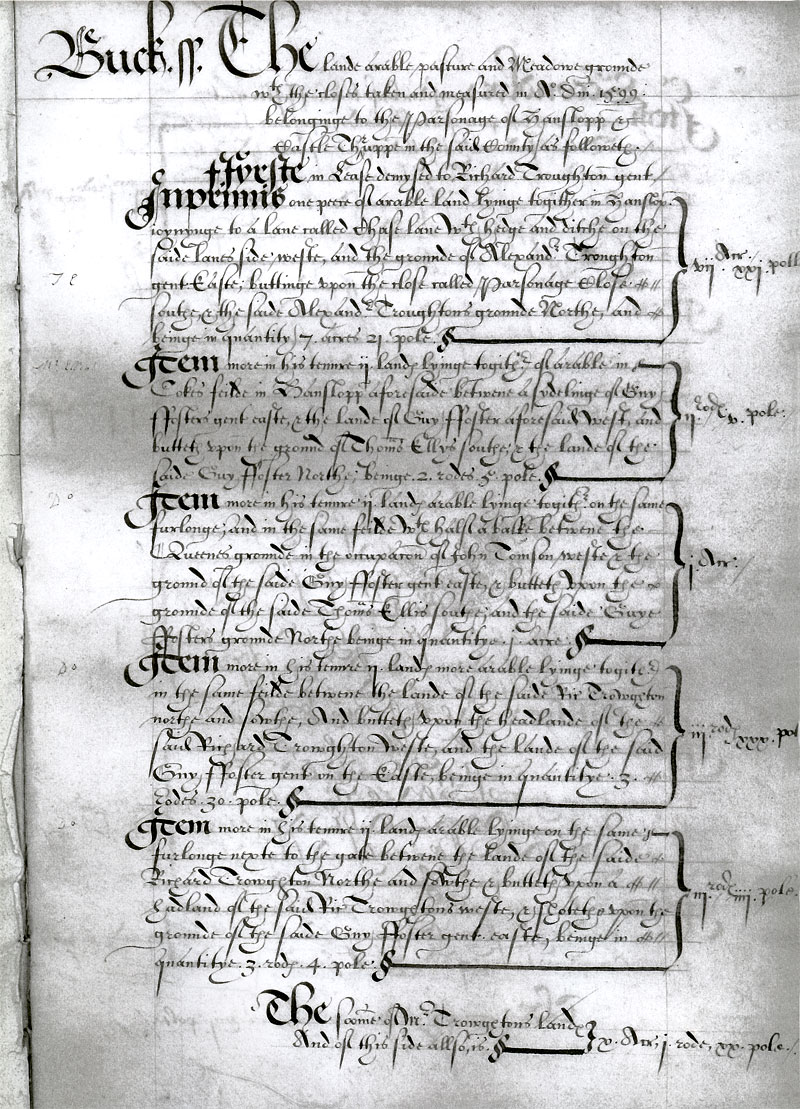 Buck. ss. The lande arable pasture and Meadowe grounde
wth the closes taken and measured in Ao. Dni. 1599.
belonginge to the Parsonage of Hanslopp &
Castle Thruppe in the said County as followeth.
Ffyrste in Lease demysed to Richard Troughton gent
Inprimis one pece of arable land lyinge togither in Hanslop
joynynge to a lane called Chase lane wth hedge and ditche on the
saide lanes side weste, and the grounde of Alexandr Troughton
gent Easte, buttinge vpon the close called Parsonage Close
southe, & the saide Alexandr Troughtons grounde Northe, and
beinge in quantity 7. acres 21. pole.
vij. Acr. xxj. poll
Item more in his tenure ij. land lyinge togithr of arable in
Cokes feilde in Hanslopp aforesaide betwene a sydelinge of Guy
ffosters gent easte, & the lande of Guy ffoster aforesaid west, and
butteth vpon the ground of Thoms Ellys southe, & the lande of the
saide Guy ffoster Northe, beinge 2. rodes 5. pole.
ij. rod v. pole.
Do
Item more in his tenure ij. land arable lyinge togithr on the same
furlonge, and in the same feilde wth half a balke betwene the
Queenes grounde in the occupacon of John Tomson weste & the
ground of the saide Guy ffoster gent easte, & butteth vpon the
grounde of the saide Thoms Ellis southe, and the saide Guye
ffosters grounde Northe beinge in quantitye .1. acre.
j. Acr.
Do
Item more in his tenure ij. land more arable lyinge togithr
in the same feilde betwene the lande of the saide Ric Trowghton
northe and Sowthe, And butteth vpon the headlande of the
said Richard Trowghton Weste, and the lande of the said
Guy ffoster gent on the Easte, beinge in quantitye .3.
rodes .30. pole.
iij rod xxx. pol
Item more in his tenure ij. land arable lyinge on the same
furlonge nexte to the gate betwene the lande of the saide
Richard Trowghton Northe and Sowthe & butteth vpon a
hadland of the said Ric Trowghtons weste, & shoteth vpon the
grounde of the saide Guy ffoster gent. easte, beinge in
quantitye .3. rod .4. pole.
iij. rod iiij. pole.
The some of Mr. Trowghtons land
And of this side allso, is.
x. Acr. j. rode, xx. pole.